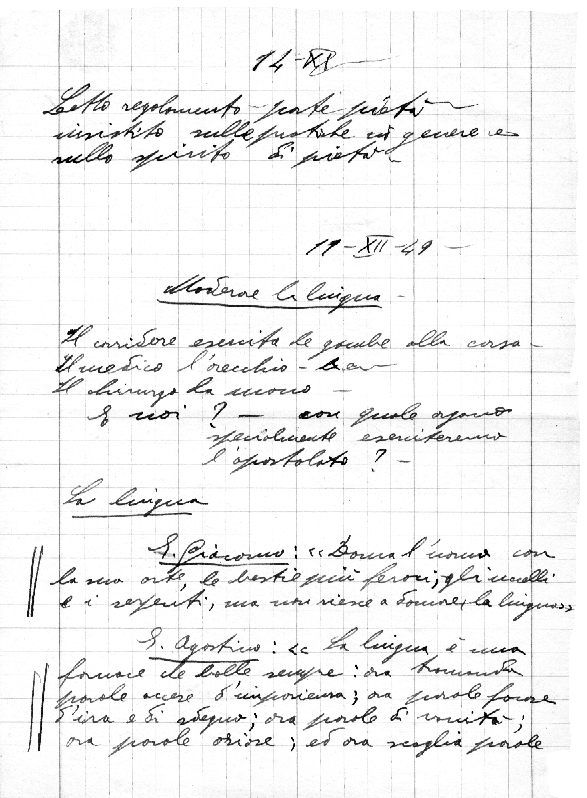 14-XII-
Letto regolamento - parte pietà -
insistito sulle pratiche in genere e
sullo spirito di pietà -
19-XII-49-
Moderare la lingua -
Il corridore esercita le gambe alla corsa -
Il medico l'orecchio -
Il chirurgo la mano -
E noi ? - con quale organo
specialmente eserciteremo
l'apostolato ? -
La lingua
S. Giacomo: « Doma l'uomo con
la sua arte, le bestie più feroci; gli uccelli
e i serpenti, ma non riesce a domare la lingua»
S. Agostino: « La lingua è una
fornace che bolle sempre: ora tramanda
parole accese d'impazienza; ora parole focose
d'ira e di sdegno; ora parole di vanità;
ora parole oziose; ed ora scaglia parole